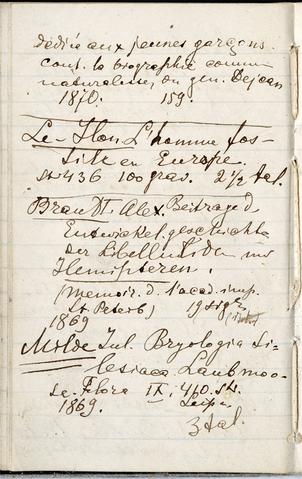 dédiée aux jeunes garçons
cont. la biographie comme
naturaliste, du gen. Dejean
1870. 159.
Le-Hon L'homme fos-
sile en Europe.
str 436 100 grav. 2 1/2 tal.
Brandt Alex. Beitrage d.
Entwickel.geschichte
der Libelluliden und
Hemipteren.
(Memoir. d. l'acad. imp.
St. Petersb)
1869
Milde Jul. Bryologia Si-
lesiaca Laubmoo-
se Flora IX, 410. str.
1869. Leipz.
3 tal.